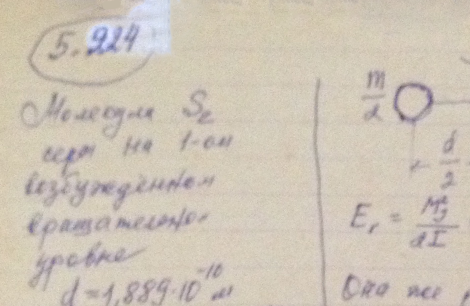 5.924
Молекула S₂
серы на 1-ом
возбуждённом
вращательном
уровне
d = 1,889·10⁻¹⁰ м
m/2
d/2
Eᵣ = M²/2I
Она же